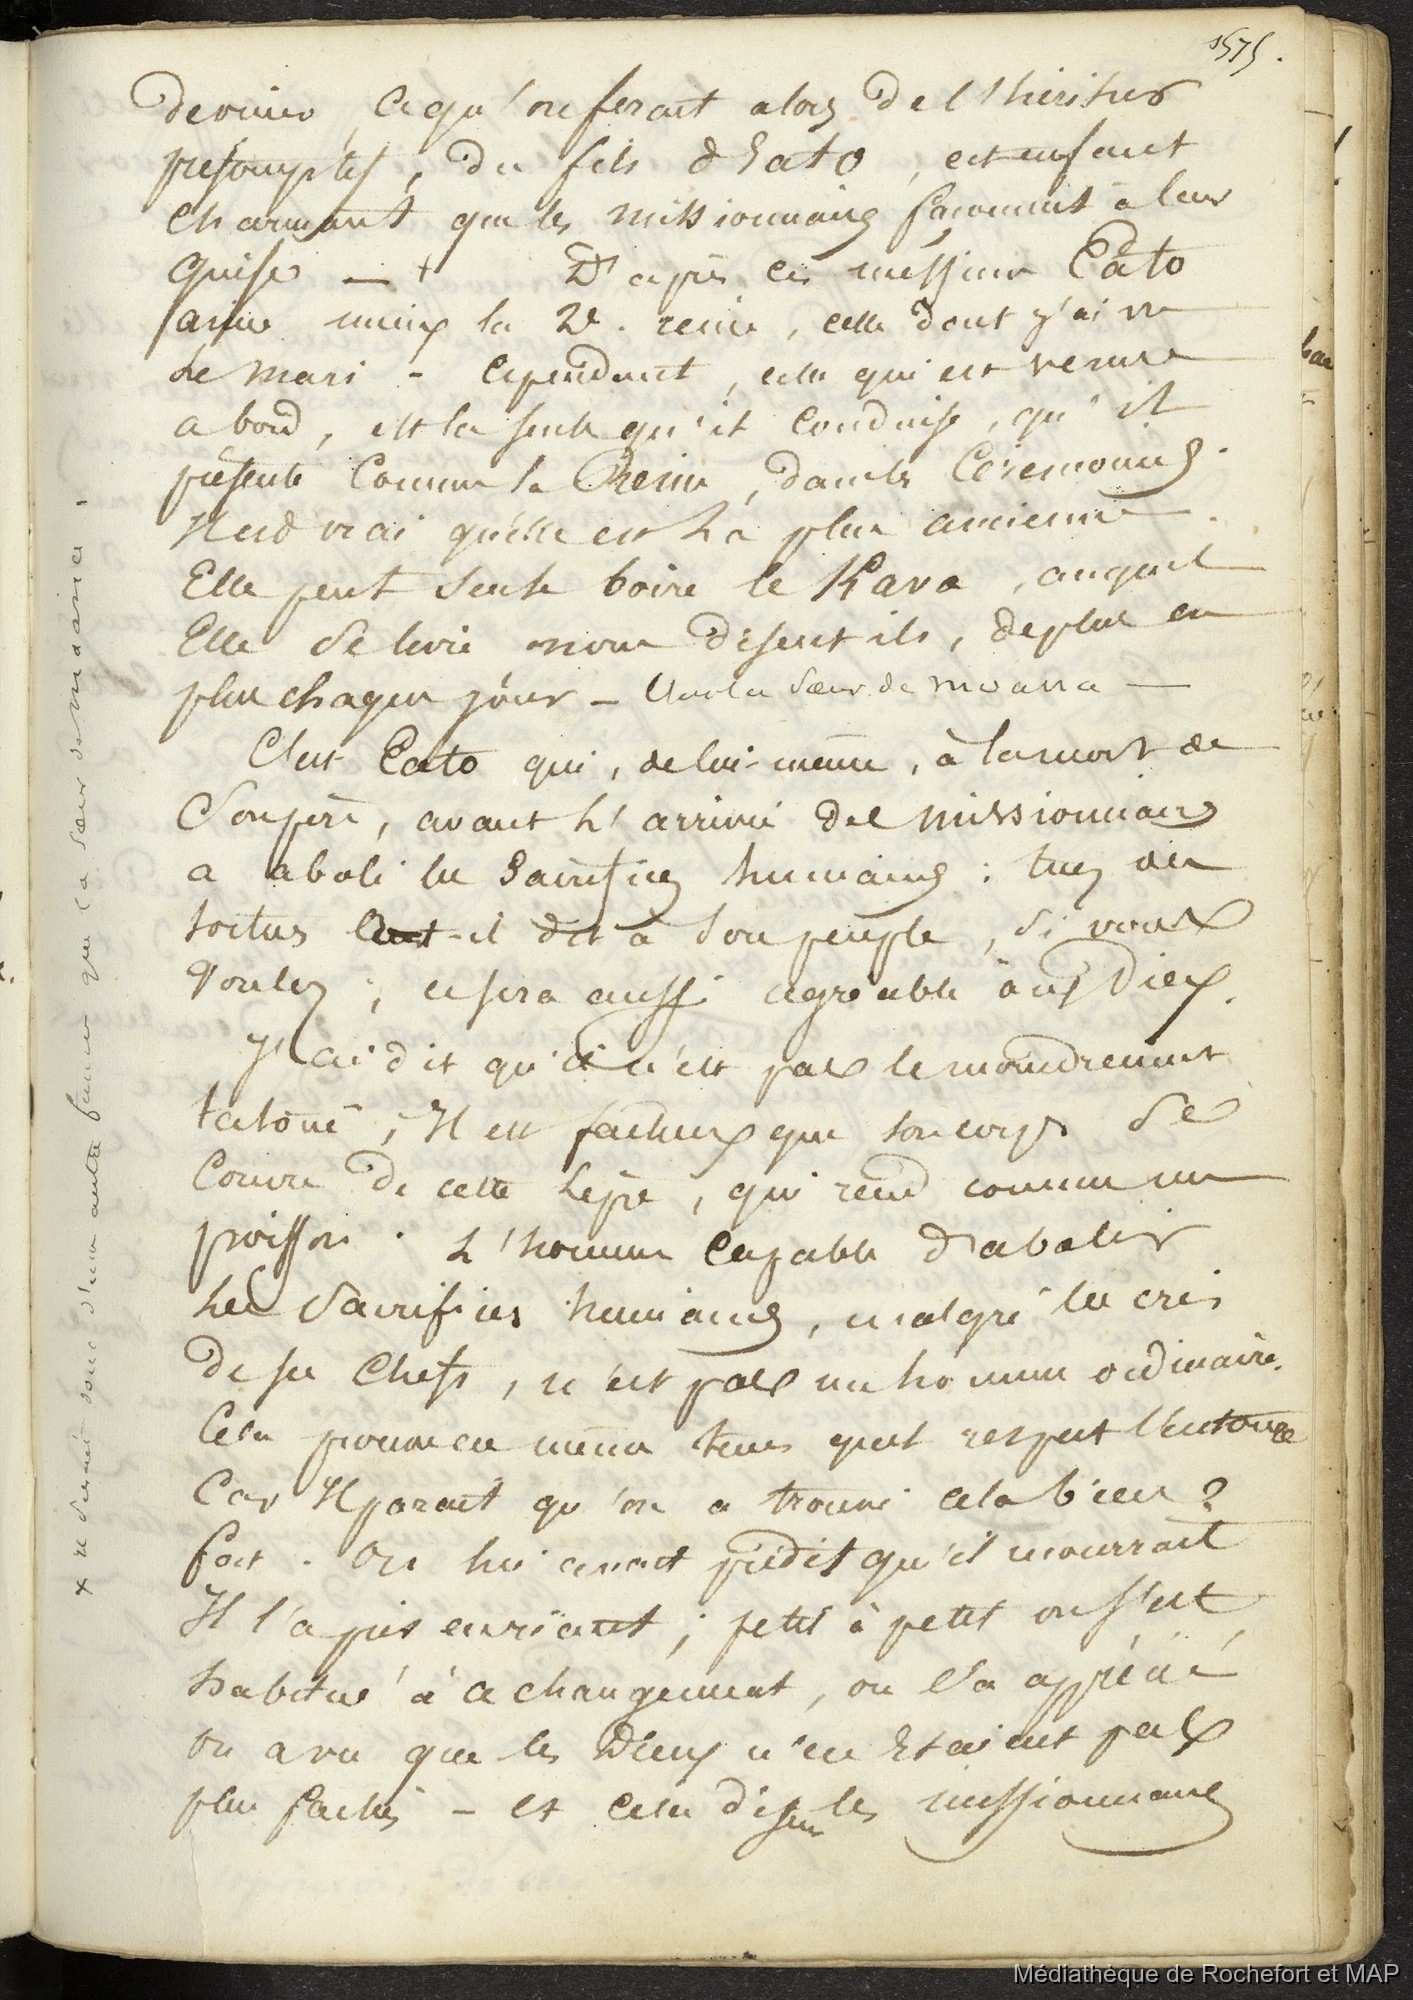 1575.
deviner, ce qu'on ferait alors de l'héritier
présomptif, du fils d'Eato, cet enfant
charmant que les missionnaires façonnent à leur
guise — + D'après ces messieurs Eato
aime mieux la 2e. reine, celle dont j'ai vu
le mari - cependant, celle qui est venue
a bord, est la seule qu'il conduise, qu'il
présente comme la Reine, dans les Cérémonies.
Il est vrai qu'elle est la plus ancienne.
Elle peut seule boire le Kava, auquel
Elle se livre nous disent ils, de plus en
plus chaque jour — la sœur de moana —
C'est Eato qui, de lui-même, à la mort de
son père, avant l'arrivée des missionnaires
a aboli les sacrifices humains : tuez des
tortues a-t-il dit à son peuple, si vous
voulez ; ce sera aussi agréable aux Dieux.
J'ai dit qu'il n'est pas le moindrement
tatoué ; Il est facheux que son corps se
couvre de cette lèpre, qui rend comme un
poisson. L'homme capable d'abolir
les sacrifices humains, malgré les cris
de ses Chefs, n'est pas un homme ordinaire.
Cela prouve en même tems quel respect l'entoure
Car Il parait qu'on a trouvé cela bien ?
fort. On lui avait prédit qu'il mourrait
Il l'a pris en riant ; petit à petit on s'est
habitué à ce changement, on l'a apprécié
on a vu que les Dieux n'en Etaient pas
plus fachés — et cela disent les missionnaires
x ne serait donc d'une autre femme que la sœur de moana.
Médiathèque de Rochefort et MAP